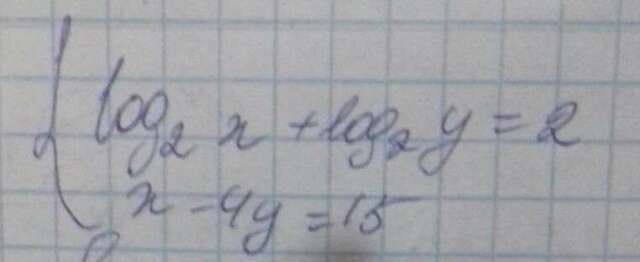 log₂ x + log₂ y = 2
x - 4y = 15